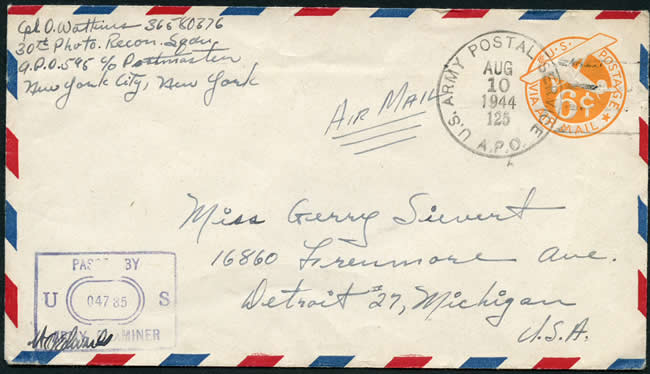 Cpl O. Watkins 36560376
30th Photo. Recon. Sqdn,
A.P.O. 595 c/o Postmaster,
New York City, New York
AIR MAIL
U.S. ARMY POSTAL SERVICE
AUG
10
1944
125
A.P.O.
U.S. POSTAGE
6¢
VIA AIR MAIL
Miss Gerry Sievert
16860 Greenmore Ave.
Detroit 27, Michigan
U.S.A.
PASSED BY
U 04785 S
ARMY EXAMINER